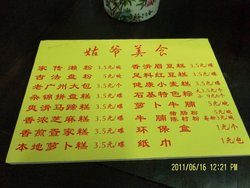 姑爷美食
家传濑粉 3.5元/碟 香滑眉豆糕 3.5元/碟
古法盘粉 5元/ 足料红豆糕 3.5元/碟
老广州大包 3元/个 健康小麦糕 3.5元/碟
杂锦拼盘糕 5元/碟 石基特色粽 5元/
爽滑马蹄糕 3.5元/碟 萝卜牛腩 5元/
香浓芝麻糕 3.5元/碟 牛腩 粉 5元/
香煎萱家糕 3.5元/碟 环保盒 1元/个
本地萝卜糕 3.5元/碟 纸巾 1元/包
2011/06/16 12:21 PM